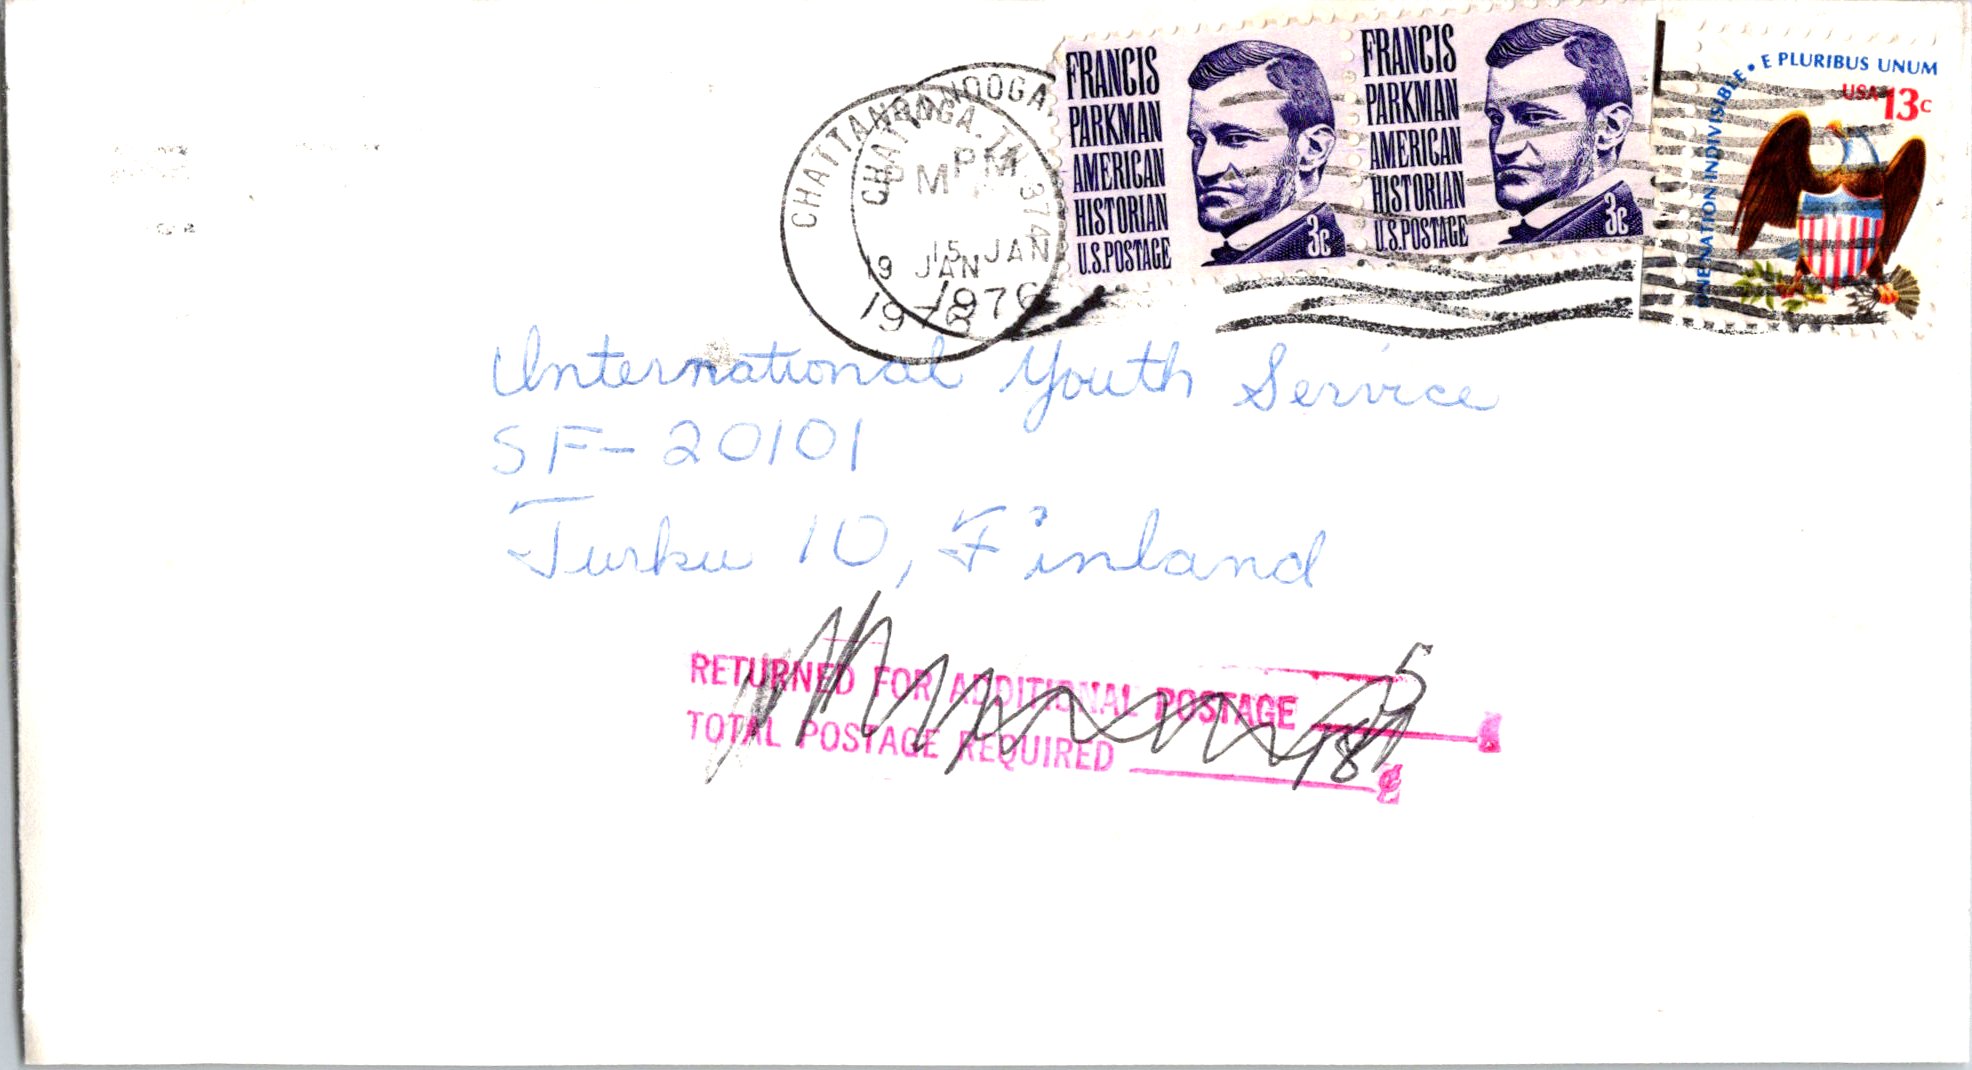 CHATTANOOGA,
CHATTANOOGA, TN 374
PM PM
15 JAN
19 JAN
1976
1976
FRANCIS
PARKMAN
AMERICAN
HISTORIAN
U.S.POSTAGE
3c
FRANCIS
PARKMAN
AMERICAN
HISTORIAN
U.S.POSTAGE
3c
ONE NATION INDIVISIBLE • E PLURIBUS UNUM
USA 13c
International Youth Service
SF-20101
Turku 10, Finland
RETURNED FOR ADDITIONAL POSTAGE 5
TOTAL POSTAGE REQUIRED 18 ¢